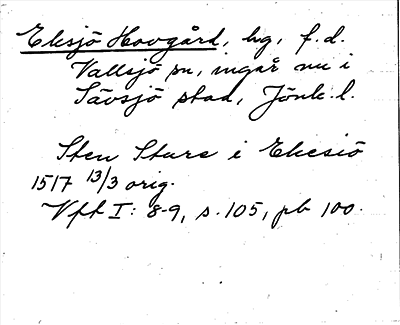 Eksjö Hovgård, hg, f.d.
Vallsjö sn, ingår nu i
Sävsjö stad, Jönk. l.
Sten Sture i Ekesiö
1517 13/3 orig.
Vfk I: 8-9, s. 105, pb 100.